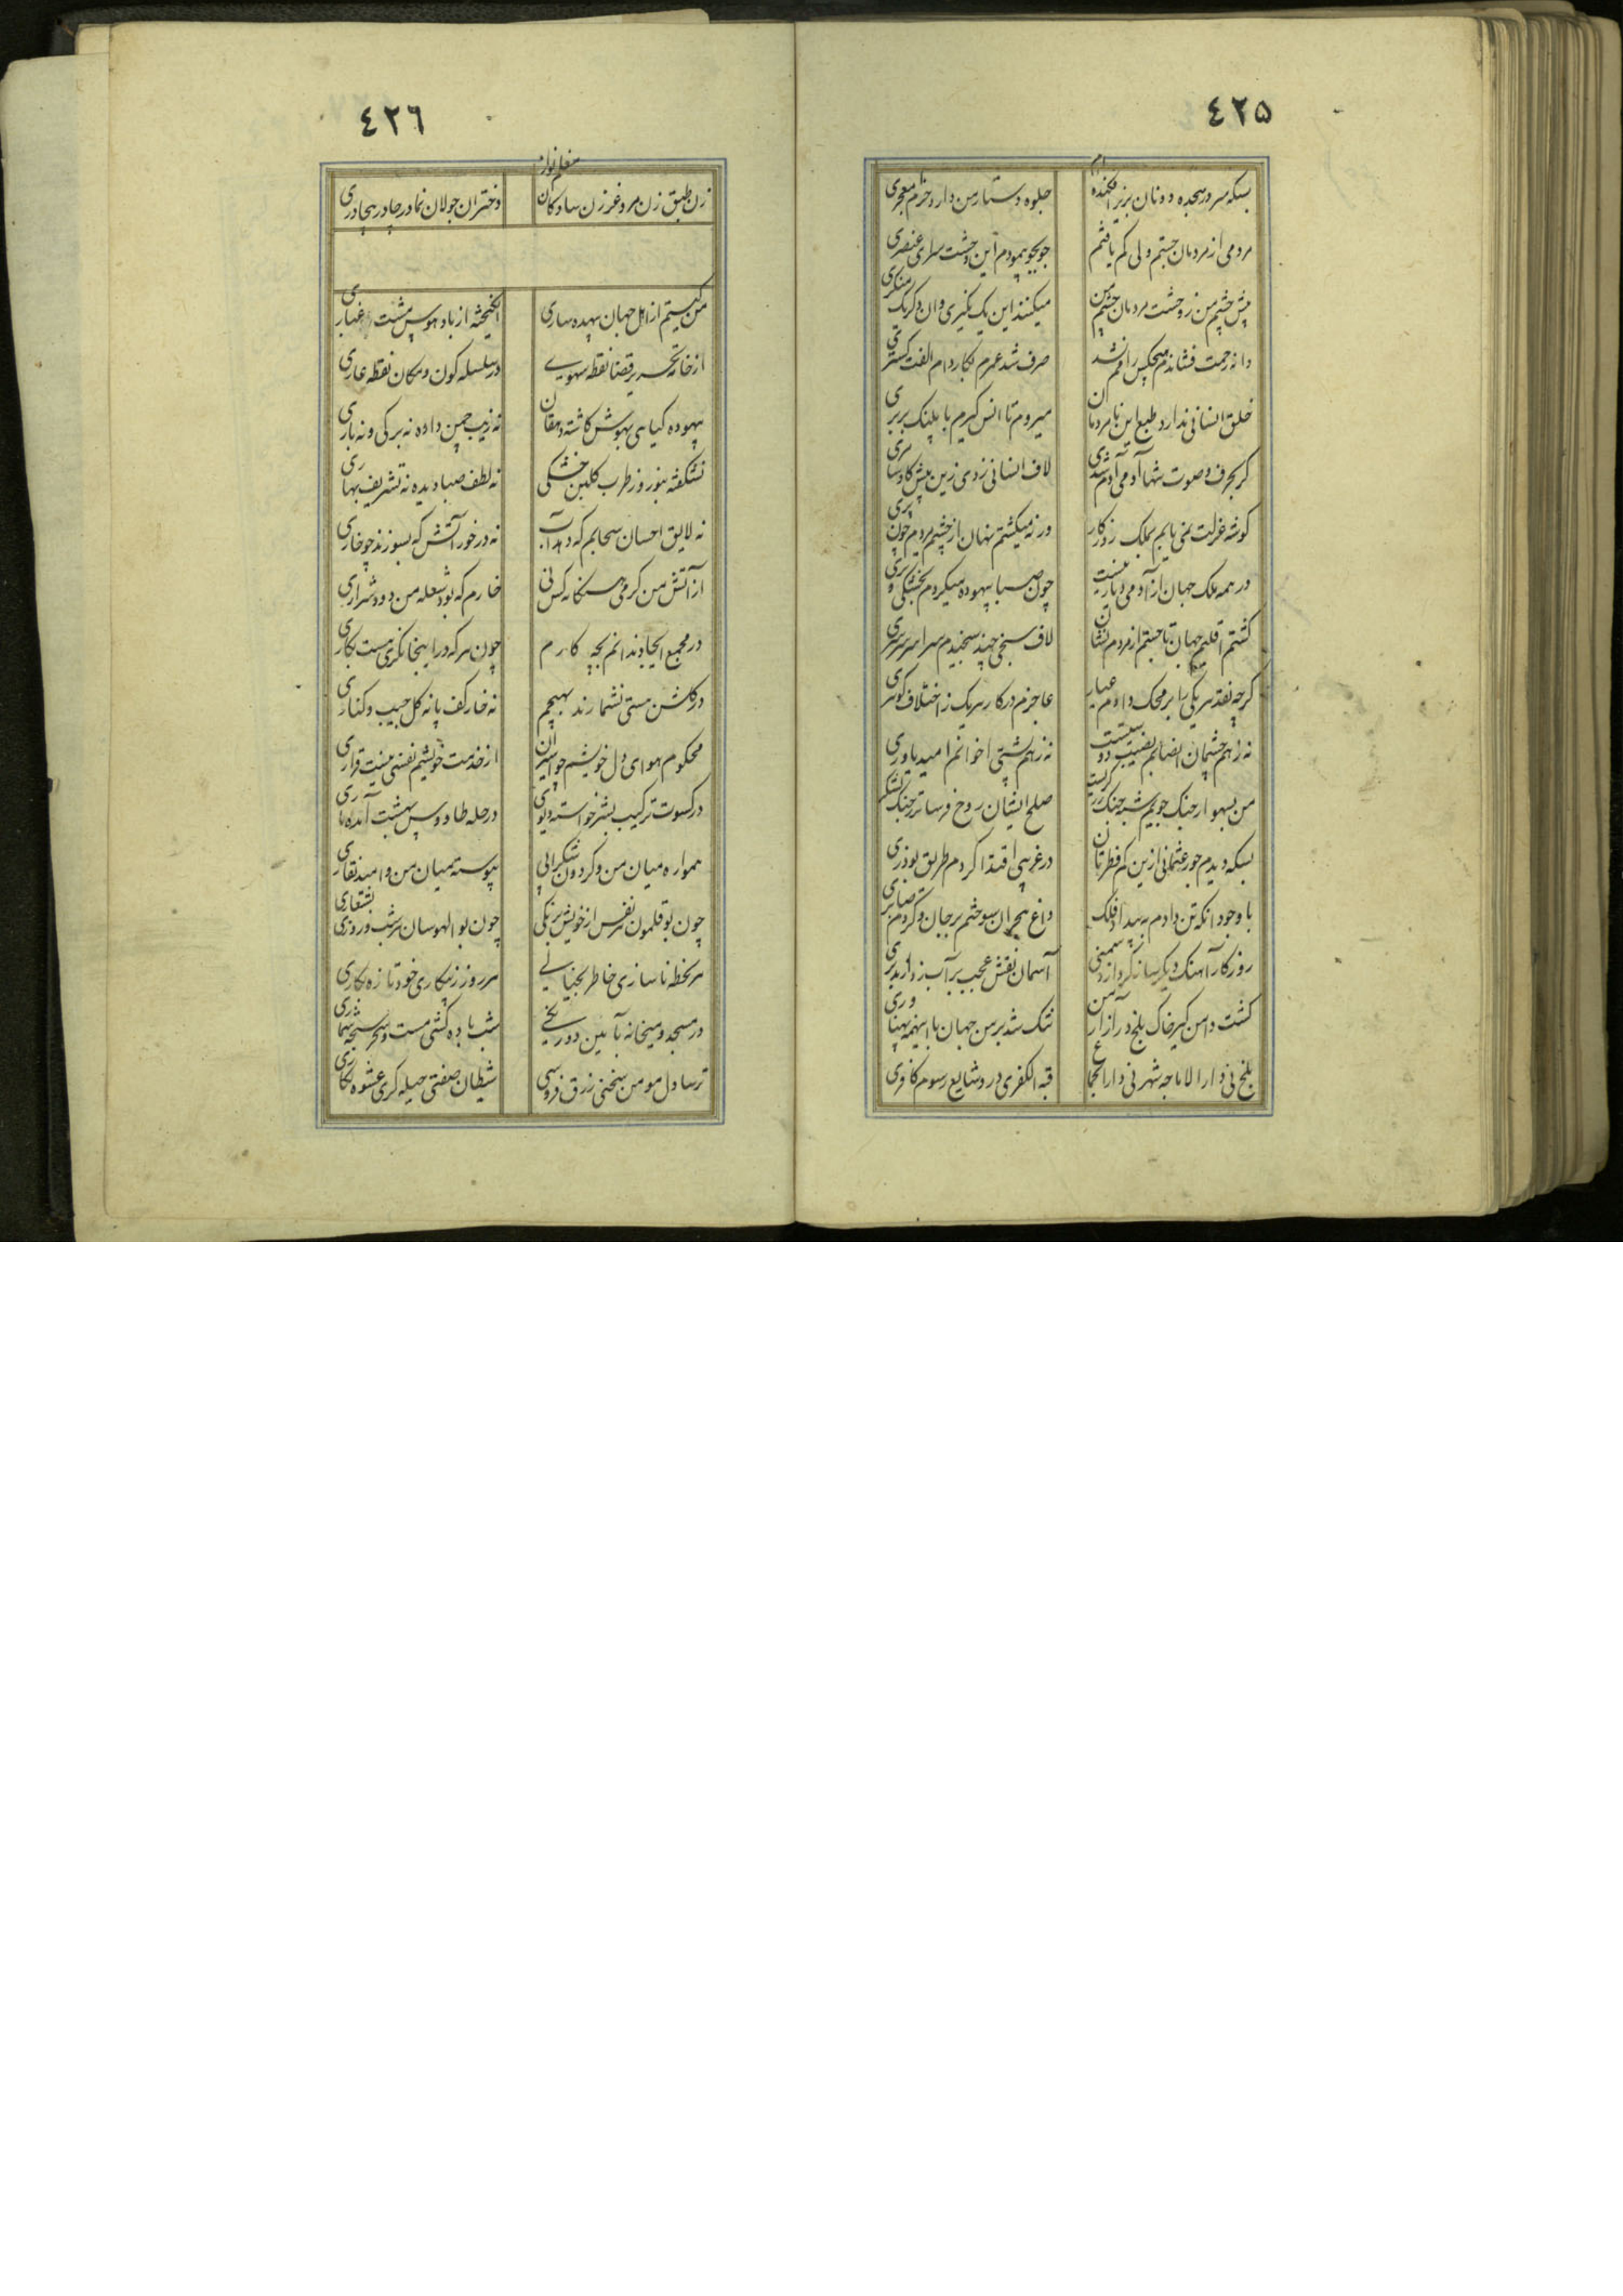 ٤٢٥
بسکه سر در سجده دونان بزیر افکنده ام
جلوه دستار من دارد خرام معجری
مردمی از مردمان جستم ولی کم یافتم
جوبجو پیمودم این وحشت سرای عنصری
پیش چشم من ز وحشت مردمان چشم من
میکنند این یک نکیری وان دکر یک منکری
دانه رحمت فشاندم هیچکس رامم نشد
صرف شد عمرم بکار دام الفت کستری
خلق انسانی ندارد طبع این نامردمان
میروم تا انس کیرم با پلنک بربری
کر بحرف و صوت تنها آدمی آدم شدی
لاف انسانی زدی زین پیش کاو سامری
کوشه عزلت نمی یابم بملک روزکار
ورنه میکشتم نهان از چشم مردم چون پری
در همه ملک جهان از آدمی دیار نیست
چون صبا بیهوده میکردم بخشکی و تری
کشتم اقلیم جهان تا جستم از مردم نشان
لاف سنجی چند سنجیدم سراسر سرسری
کرچه نقد هر یکی را بر محک دادم عیار
عاجزم در کار هر یک ز اختلاف کوهری
نه ز هم چشمان انصابم نصیب دوستیست
نه ز هم پشتی اخوانم امید یاوری
من بهموار جنک جویم شبه جنک زرکریست
صلح ایشان روح فرساتر ز جنک لشکری
بسکه دیدم جور عثمانی ازین کم فطرتان
در غریبی اقتدا کردم طریق بوذری
با وجود انکه تن دادم به بیداد فلک
داغ هجران سوختم بر جان و کردم صابری
روزکار آهنک دیکر ساز کرد از دشمنی
آسمان نقش عجب بر آب زد از بدبری
کشت دامن کیر خاک بلخ در آزار من
تنک شد بر من جهان با اینهمه پهناوری
بلخ نی دارالاماجه شهر نی دارالنجاع
قبة الکفری درو شایع رسوم کافری
٤٢٦
زن طبق زن مرد غر زن سادکان مغلم نواز
دختران جولان نما در چادر بیچادری
من کیستم از اهل جهان بیهده ساری
انکیخته از باد هوس مشت غباری
از خامه تحریر قضا نقطه سهوی
در سلسله کون و مکان نقطه عاری
بیهوده کیاهی بهوس کاشته دهقان
نه زیب چمن داده نه برکی و نه باری
نشکفته بنوروز طرب کلبن خشکی
نه لطف صبا دیده نه تشریف بهاری
نه لایق احسان سحابم که دهد آب
نه در خور آتش که بسوزند چو خاری
از آتش من کرمی هنکامه کس نی
خارم که بود شعله من دود شراری
در مجمع ایجاد ندانم بچه کارم
چون هر که در اینجا نکری هست بکاری
در کلشن هستی نشمارند بهیچم
نه خار کف پا نه کل جیب و کناری
محکوم هوای دل خویشم چو اسیران
از خدمت خویشم نفسی نیست قراری
در کسوت ترکیب بشر خواسته دیوی
در حله طاووس بهشت آمده ماری
همواره میان من و کردون شکرآبی
پیوسته میان من و امید نقاری
چون بوقلمون هر نفس از خویش برنکی
چون بوالهوسان هر شب و روزی بشتعاری
هر لحظه ناسازی خاطر بجنبانی
هر روز ز بیکاری خود تازه بکاری
در مسجد و میخانه بآیین دورنخی
شب باده کشی مست و سحر سبحه شماری
ترسا دل مومن سخنی زرق فروشی
شیطان صفتی حیله کری عشوه نکاری